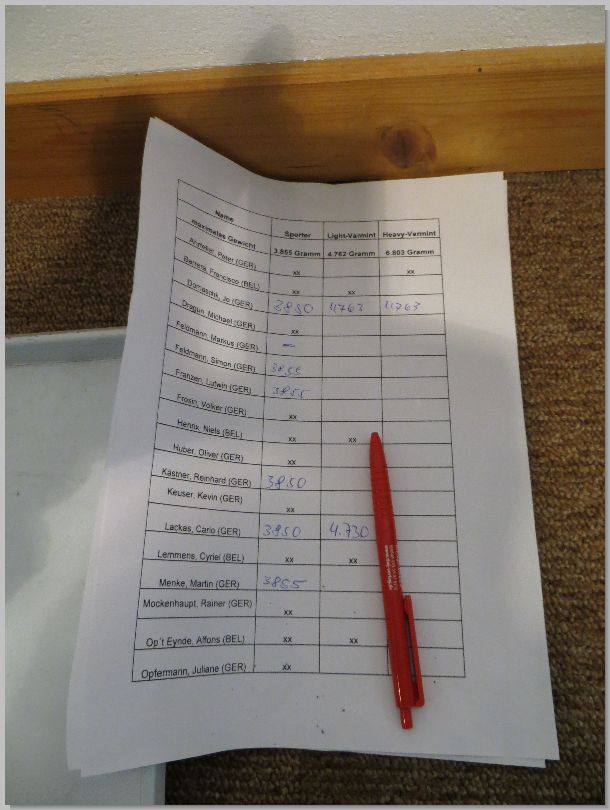 Name Sporter Light-Varmint Heavy-Varmint
maximales Gewicht 3.855 Gramm 4.762 Gramm 6.803 Gramm
Peter (GER) xx xx
Barrera, Francisco (BEL) xx xx
Domaschk, Jo (GER) 3850 4763 4763
Dragun, Michael (GER) xx
Feldmann, Markus (GER) –
Feldmann, Simon (GER) 3855
Franzen, Lutwin (GER) 3855
Frosin, Volker (GER) xx
Henrix, Niels (BEL) xx xx
Huber, Oliver (GER) xx
Kästner, Reinhard (GER) 3850
Keuser, Kevin (GER) xx
Lackas, Carlo (GER) 3850 4.730
Lemmens, Cyriel (BEL) xx xx
Menke, Martin (GER) 3855
Mockenhaupt, Rainer (GER) xx
Op´t Eynde, Alfons (BEL) xx xx
Opfermann, Juliane (GER) xx